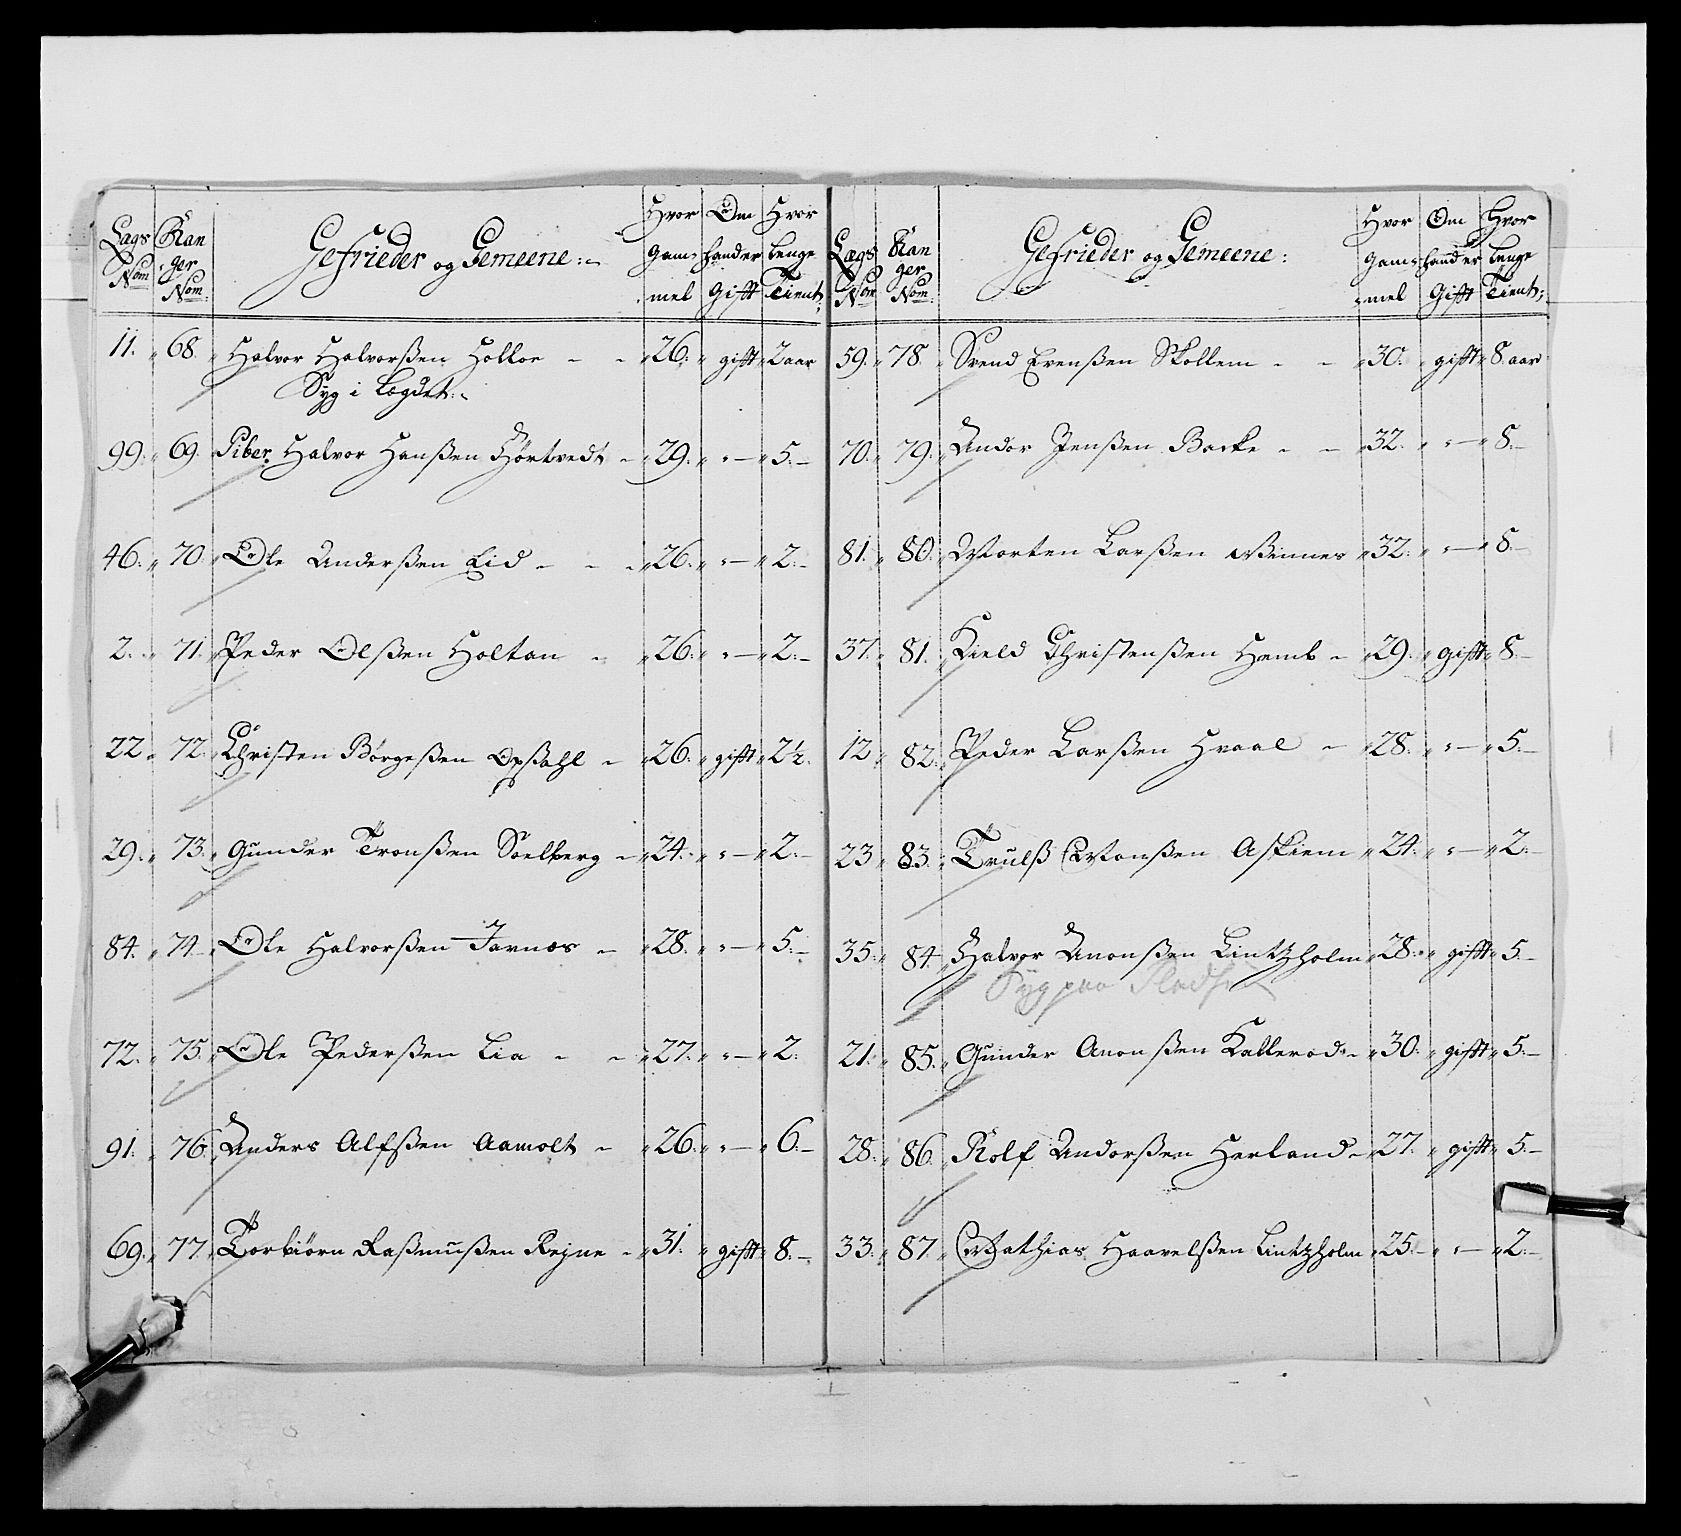 Lægs Nom | Ran ger Nom. | Gefrieder og Gemeene: | Hvor Gam= mel | Om hand er Gifft | Hvor lenge Tient,
11. 68. Halvor Halvorßen Holloe - - 26. gifft 2 aar
Syg i Lægdet:
99. 69. Piber Halvor Hanßen Hørtvedt - 29. " - 5. -
46. 70. Ole Anderßen Eid - - - 26. " - 2. -
2. 71. Peder Olßen Holtan - 26. " - 2. -
22. 72. Christen Børgeßen Opßahl - 26. gifft 2½.
29. 73. Gunder Tronßen Soelberg - 24. " - 2. -
84. 74. Ole Halvorßen Jarnæs - 28. " - 5. -
72. 75. Ole Pederßen Lia - - 27. " - 2.
91. 76. Anders Alfßen Aamolt - 26. " - 6. -
69. 77. Torbiørn Raßmußen Rejne - 31. gifft 8. -
Lægs Nom | Ran ger Nom. | Gefrieder og Gemeene: | Hvor Gam= mel | Om hand er Gifft | Hvor lenge Tient;
59. 78. Svend Evenßen Skollem - - 30. gifft 8. aar
70. 79. Andor Jenßen Backe - - 32. " - 8. -
81. 80. Morten Larßen Winnes 32. " - 8. -
37. 81. Kield Christenßen Hemb - 29. gifft 8. -
12. 82. Peder Larßen Hvaal - 28. " - 5. -
23. 83. Trulß Monßen Askiem 24. " - 2. -
35. 84. Halvor Anonßen Lintzholm 28. gifft 5. -
Syg paa
21. 85. Gunder Anonßen Kallerod - 30. gifft 5. -
28. 86. Rolf Andorßen Herland - 27. gifft 5. -
33. 87. Mathias Haavelßen Lintzholm 25. - " - 2. -